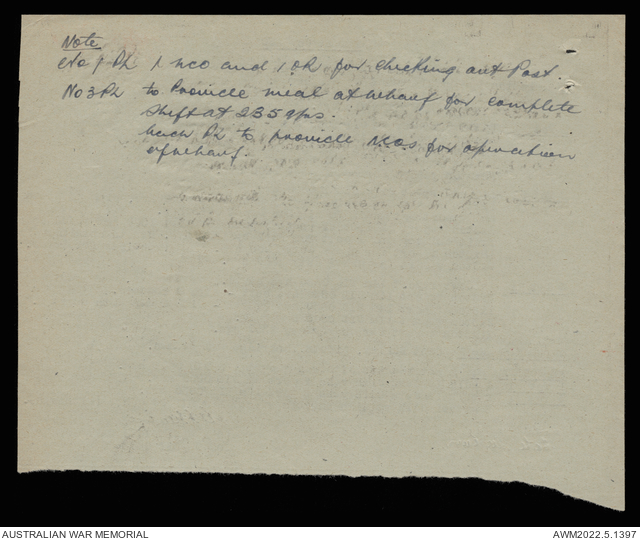 Note
No 1 Pl 1 NCO and 1 OR for checking out Post.
No 3 Pl to Provide meal at wharf for complete
shift at 2359 hrs.
Each Pl to provide NCOs for operation
of wharf.
AUSTRALIAN WAR MEMORIAL
AWM2022.5.1397